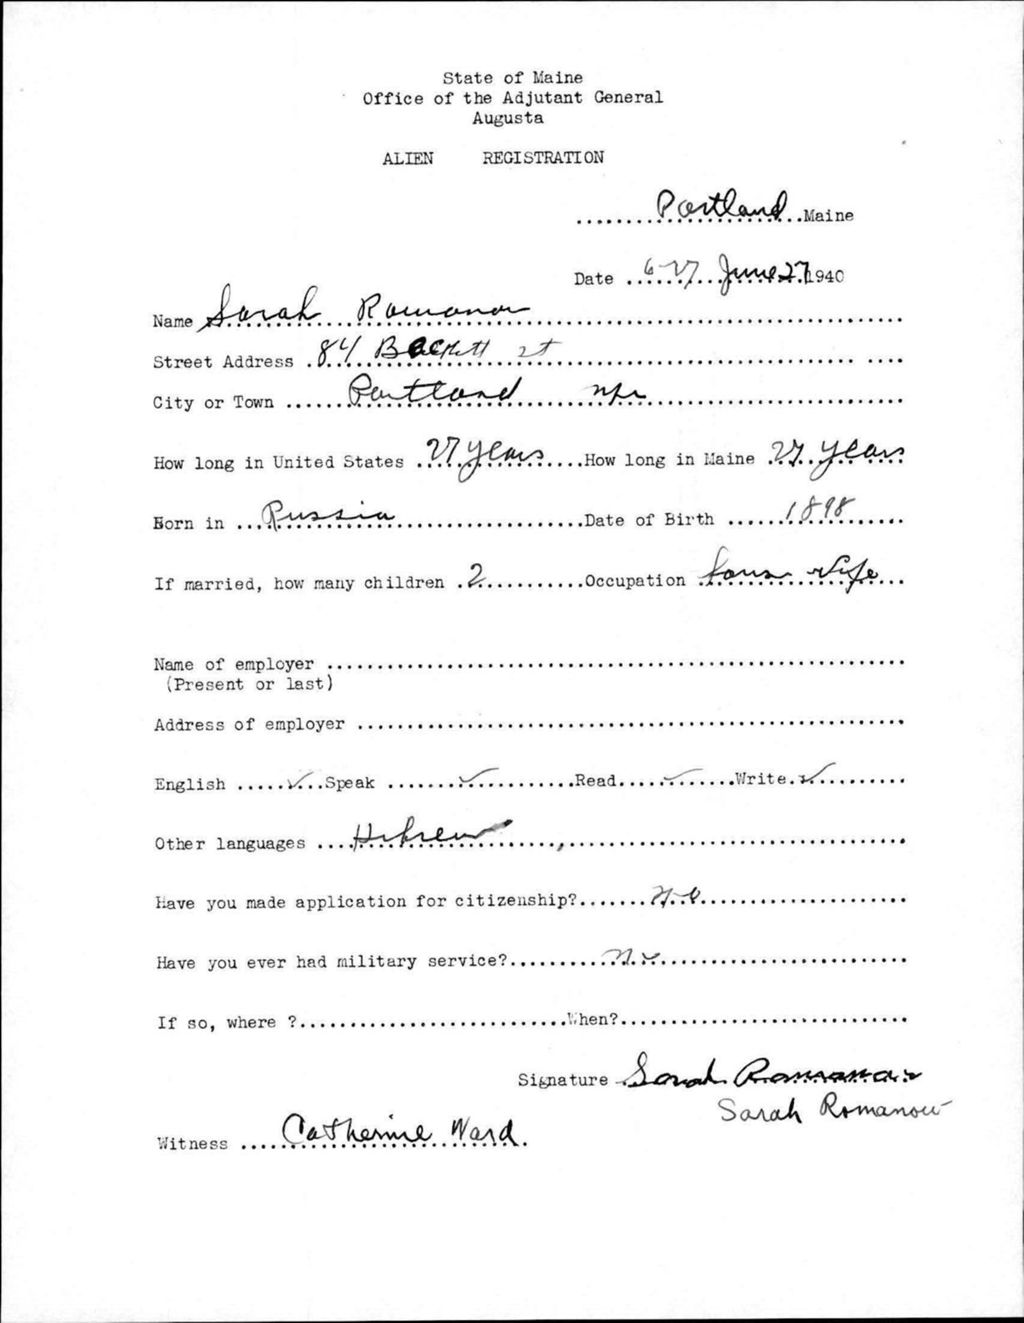 State of Maine
Office of the Adjutant General
Augusta
ALIEN REGISTRATION
Portland Maine
Date 6-27 June 27 1940
Name Sarah Romanow
Street Address 84 Backett st
City or Town Portland Me
How long in United States 27 years How long in Maine 27 years
Born in Russia Date of Birth 1898
If married, how many children 2 Occupation Hous Wife
Name of employer
(Present or last)
Address of employer
English ✓ Speak ✓ Read ✓ Write ✓
Other languages Hebrew
Have you made application for citizenship? No
Have you ever had military service? No
If so, where ? When?
Signature Sarah Romanow
Sarah Romanow
Witness Catherine Ward